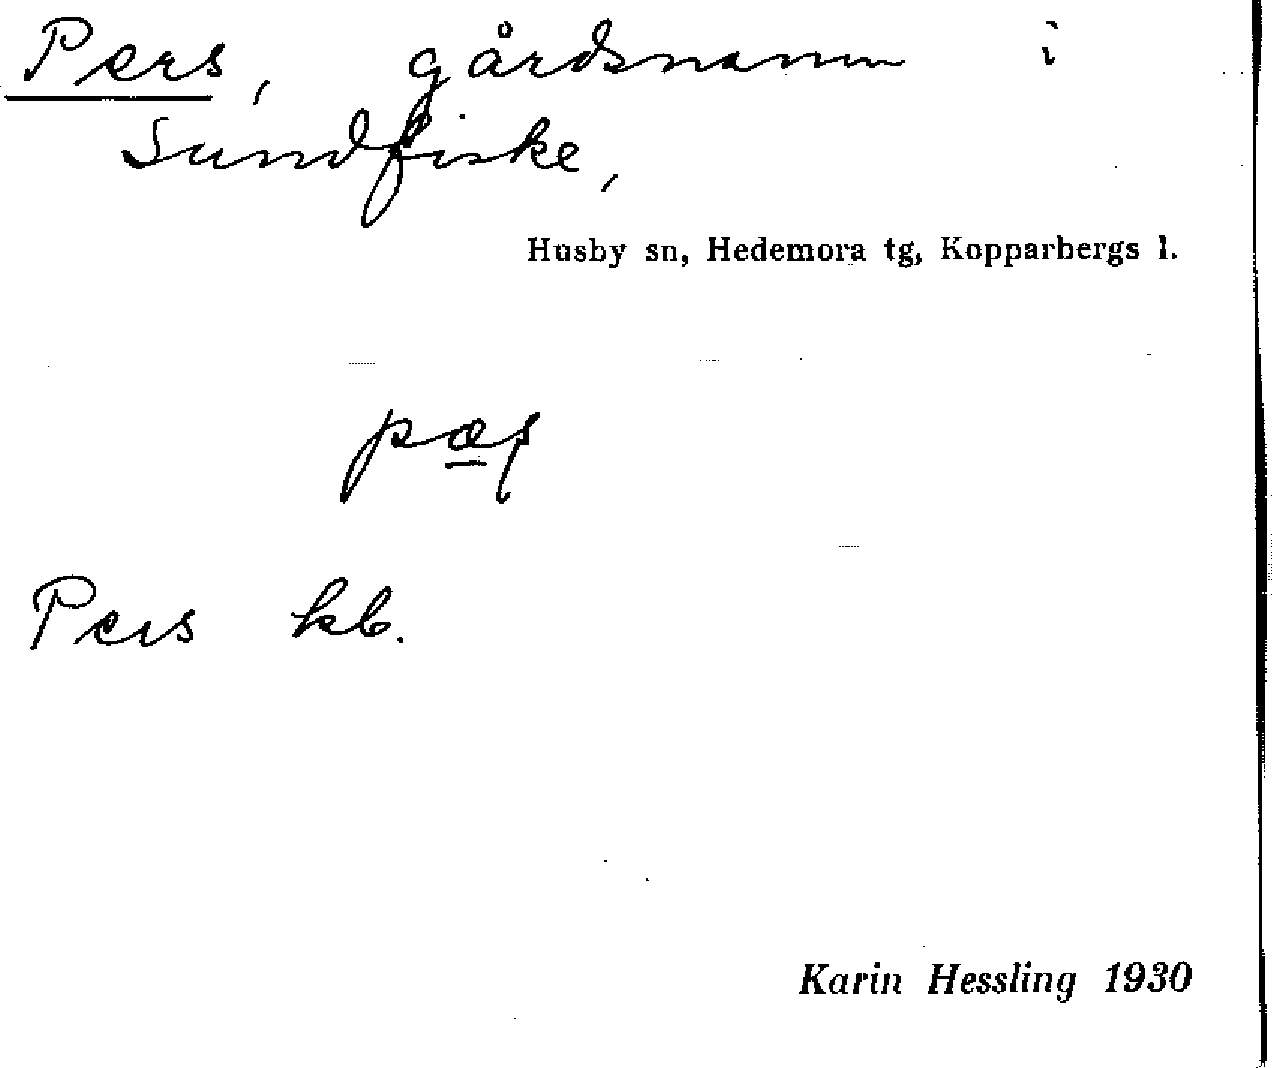 Pers, gårdsnamn i
Sundfiske,
Husby sn, Hedemora tg, Kopparbergs l.
pæʃ
Pers kb.
Karin Hessling 1930